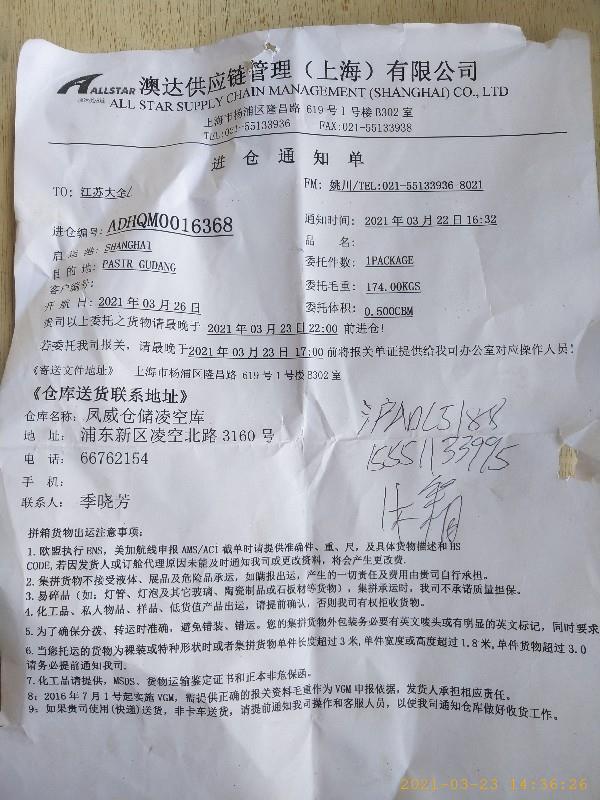 ALLSTAR 澳达供应链管理（上海）有限公司
ALL STAR SUPPLY CHAIN MANAGEMENT (SHANGHAI) CO., LTD
上海市杨浦区隆昌路 619 号 1 号楼 B302 室
TEL:021-55133936 FAX:021-55133938
进仓通知单
TO: 江苏大仝 FM: 姚川/TEL:021-55133936-8021
进仓编号: ADHQM0016368 通知时间: 2021 年 03 月 22 日 16:32
启运港: SHANGHAI 品 名:
目的地: PASIR GUDANG 委托件数: 1PACKAGE
客户编号: 委托毛重: 174.00KGS
开航日: 2021 年 03 月 26 日 委托体积: 0.500CBM
我司以上委托之货物请最晚于 2021 年 03 月 23 日 22:00 前进仓!
若委托我司报关，请最晚于2021 年 03 月 23 日 17:00 前将报关单证提供给我司办公室对应操作人员!
《寄送文件地址》 上海市杨浦区隆昌路 619 号 1 号楼 B302 室
《仓库送货联系地址》
仓库名称: 凤威仓储凌空库
地 址: 浦东新区凌空北路 3160 号
电 话: 66762154
手 机:
联系人: 季晓芳
沪ADL5188
15551133995
拼箱货物出运注意事项:
1. 欧盟执行 ENS，美加航线申报 AMS/ACI 截单时请提供准确件、重、尺，及具体货物描述和 HS
CODE, 若因发货人或订舱代理原因未能及时通知我司或更改资料，将会产生更改费.
2. 集拼货物不接受液体、展品及危险品承运，如瞒报出运，产生的一切责任及费用由贵司自行承担。
3. 易碎品（如: 灯管、灯泡及其它玻璃、陶瓷制品或石板材等货物），集拼承运时，我司不承诺质量担保。
4. 化工品、私人物品、样品、低货值产品出运，请提前确认，否则我司有权拒收货物。
5. 为了确保分拨、转运时准确，避免错装、错运。您的集拼货物外包装务必要有英文唛头或有明显的英文标记，同时要求
6. 当您托运的货物为裸装或特种形状时或者集拼货物单件长度超过 3 米, 单件宽度或高度超过 1.8 米, 单件货物超过 3.0
请务必提前通知我司.
7. 化工品请提供，MSDS、货物运输鉴定证书和正本非危保函。
8: 2016 年 7 月 1 号起实施 VGM，需提供正确的报关资料毛重作为 VGM 申报依据，发货人承担相应责任。
9: 如果贵司使用(快递)送货，非卡车送货，请提前通知我司操作和客服人员，以便我司通知仓库做好收货工作。
2021-03-23 14:36:26